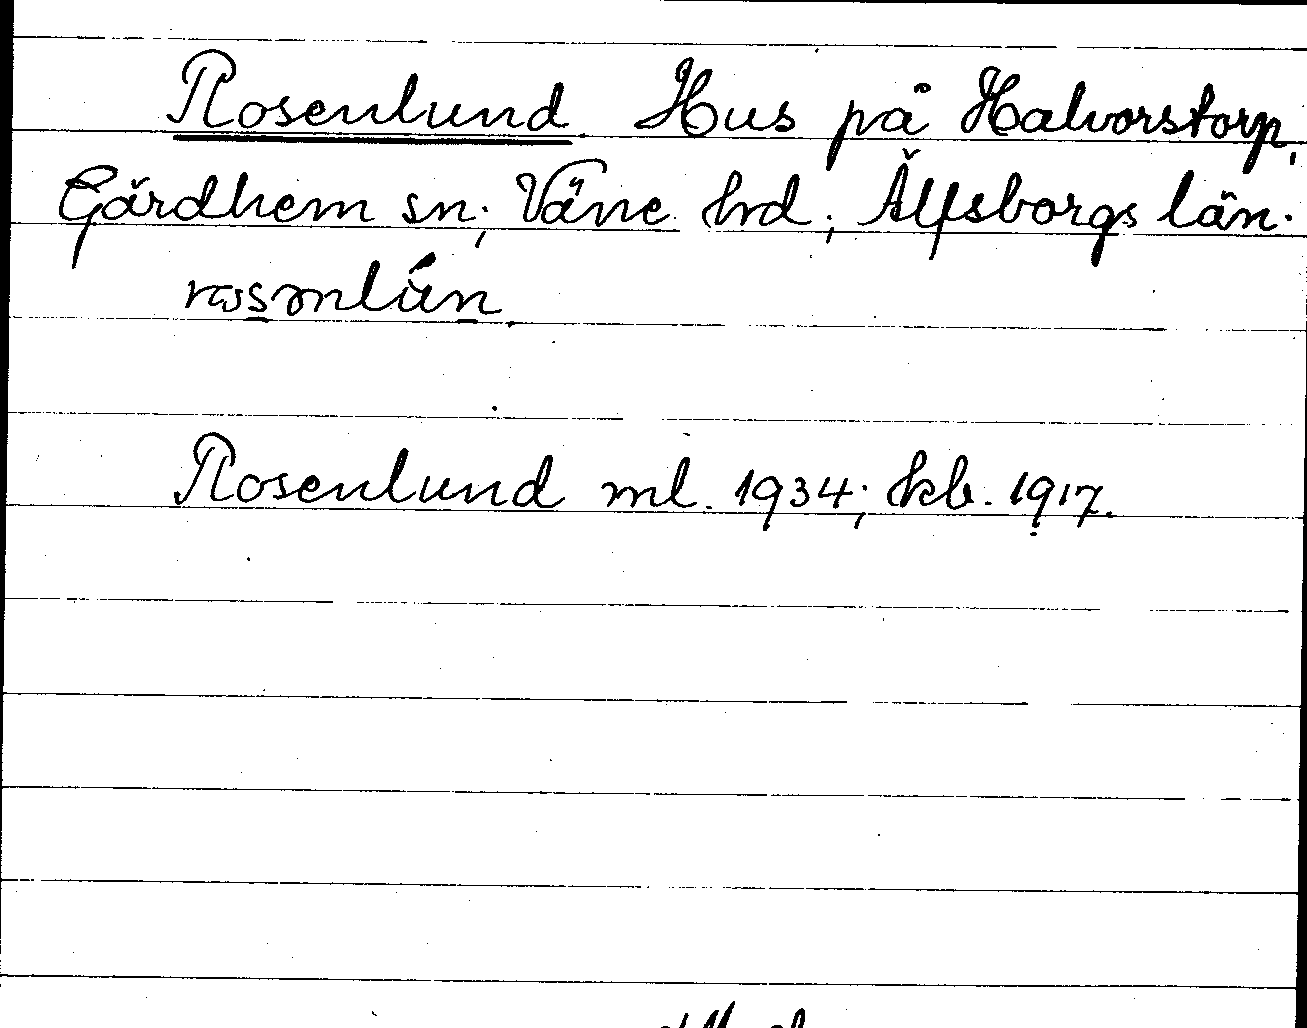 Rosenlund. Hus på Halvorstorp,
Gärdhem sn; Väne hd; Älfsborgs län.
Rosenlund ml. 1934; kb. 1917.